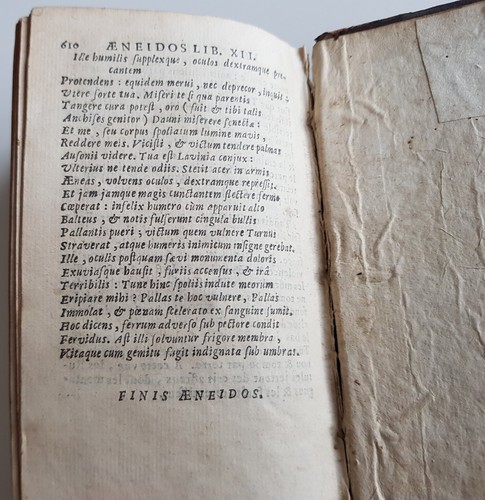 610 ÆNEIDOS LIB. XII.
Ille humilis supplexque, oculos dextramque pre-
cantem
Protendens: equidem merui, nec deprecor, inquit:
Utere sorte tua. Miseri te si qua parentis
Tangere cura potest, oro (fuit & tibi talis
Anchises genitor) Dauni miserere senectæ:
Et me, seu corpus spoliatum lumine mavis,
Reddere meis. Vicisti, & victum tendere palmas
Ausonii videre. Tua est Lavinia conjux:
Ulterius ne tende odiis. Stetit acer in armis
Æneas, volvens oculos, dextramque repressit.
Et jam jamque magis cunctantem flectere sermo
Cœperat: infelix humero cùm apparuit alto
Balteus, & notis fulserunt cingula bullis
Pallantis pueri; victum quem vulnere Turnus
Straverat, atque humeris inimicum insigne gerebat.
Ille, oculis postquam sævi monumenta doloris
Exuviasque hausit, furiis accensus, & irâ
Terribilis: Tune hinc spoliis indute meorum
Eripiare mihi? Pallas te hoc vulnere, Pallas
Immolat, & pœnam scelerato ex sanguine sumit.
Hoc dicens, ferrum adverso sub pectore condit
Fervidus. Ast illi solvuntur frigore membra,
Vitaque cum gemitu fugit indignata sub umbras.
FINIS ÆNEIDOS.